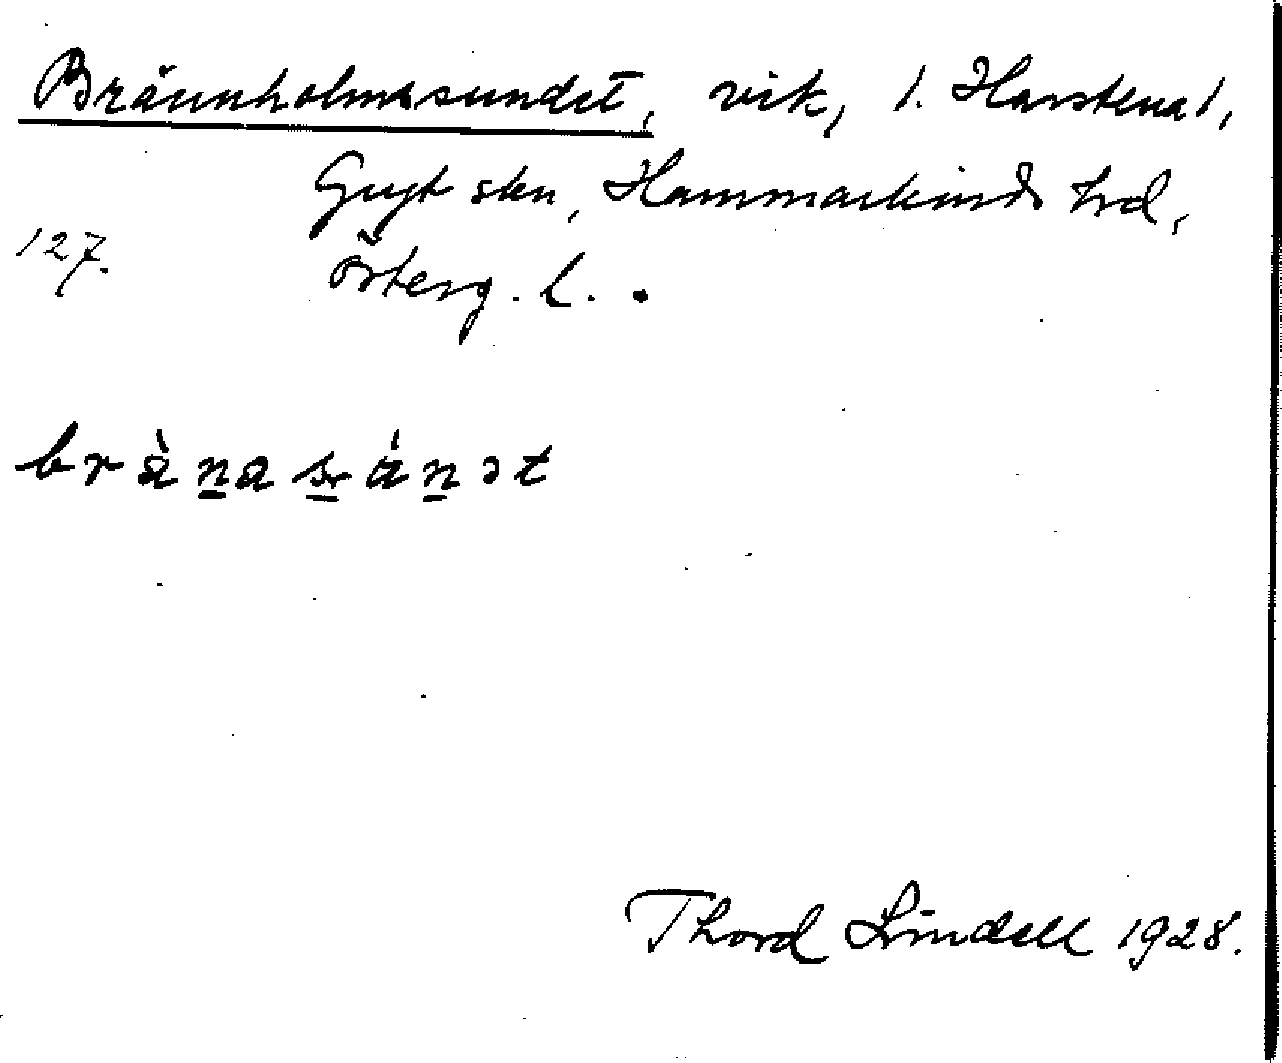 Brännholmssundet, vik, /. Harstena/,
Gryt skn, Hammarkinds hrd,
127. Österg. l.
Thord Lindell 1928.